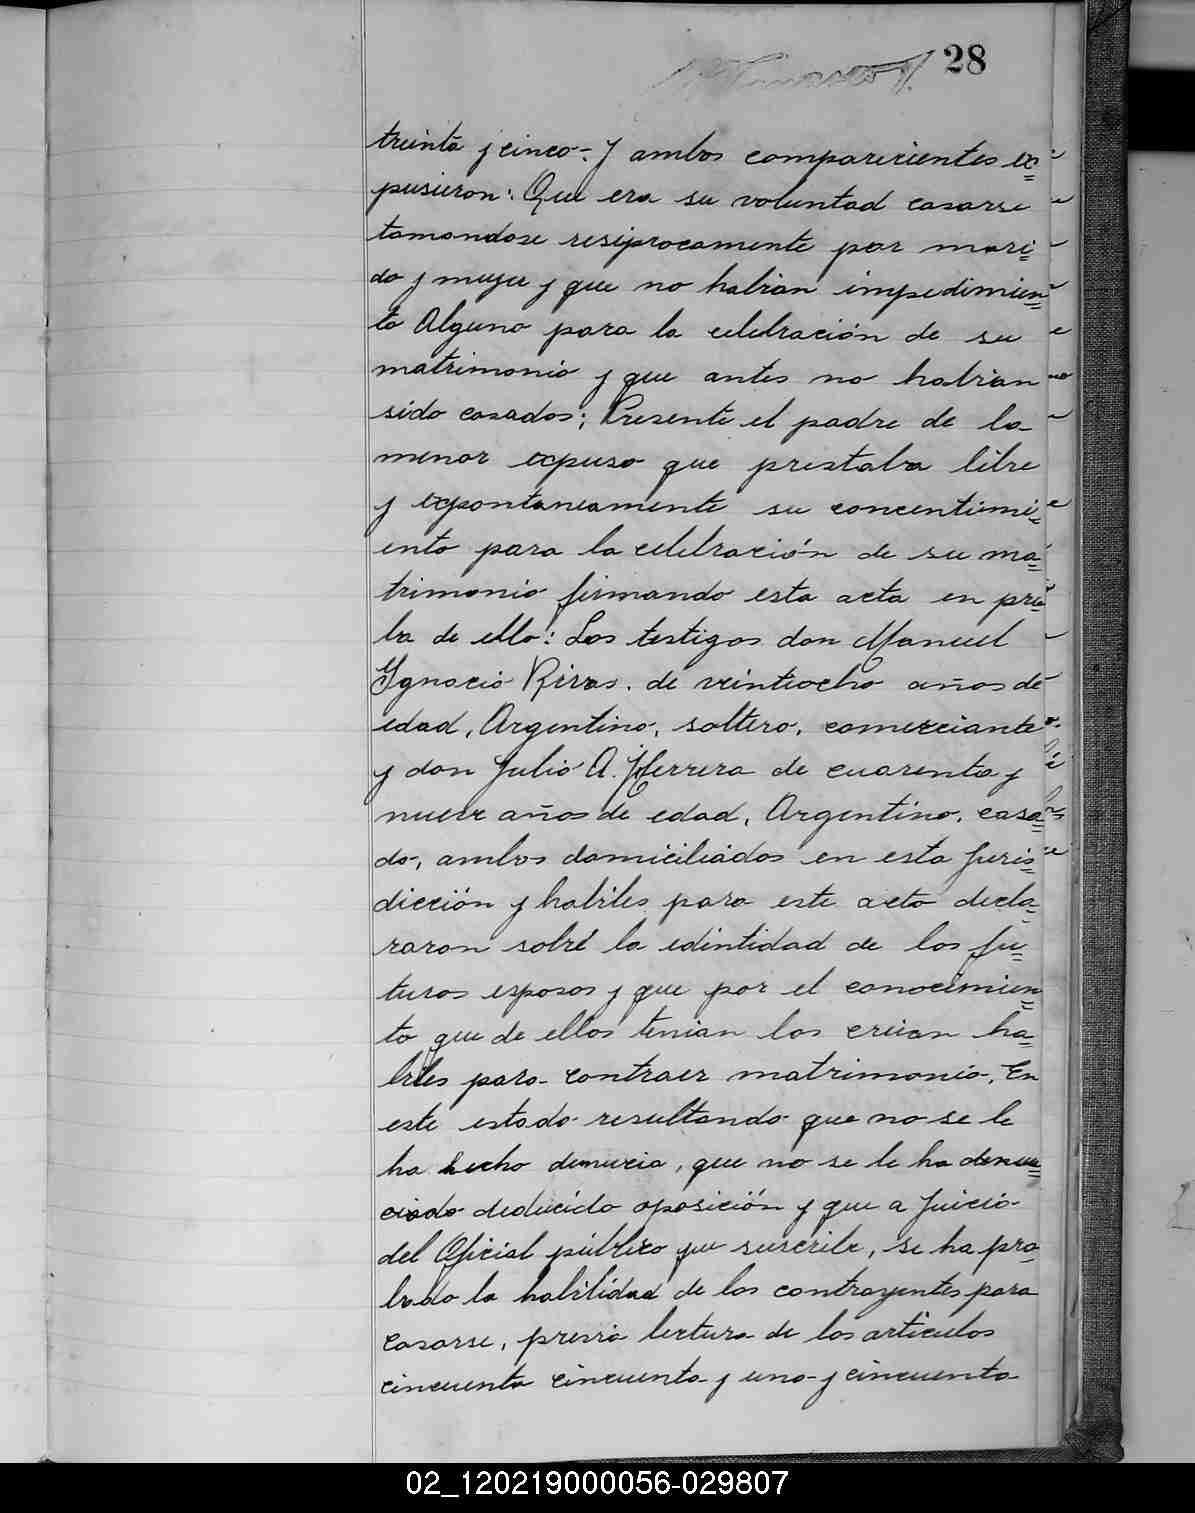 28
treinta y cinco.- Y ambos comparecientes ex=
pusieron: Que era su voluntad casarse
tomandose resiprocamente por mari=
do y mujer y que no habian impedimien=
to Alguno para la celebración de su
matrimonio y que antes no habian
sido casados; Presente el padre de la
menor expuso que prestaba libre
y expontaneamente su concentimi=
ento para la celebración de su ma=
trimonio firmando esta acta en prue
ba de ello: Los testigos don Manuel
Ygnacio Rivas. de veintiocho años de
edad, Argentino, soltero, comerciante
y don Julio A. Herrera de cuarenta y
nueve años de edad, Argentino, casa=
do, ambos domiciliados en esta Juris=
dicción y habiles para este acto decla=
raron sobre la edintidad de los fu=
turos esposos y que por el conocimien=
to que de ellos tenian los creian ha=
biles para contraer matrimonio. En
este estado resultando que no se le
ha hecho denuncia, que no se le ha denun=
ciado deducido oposición y que a Juicio
del Oficial público que suscribe, se ha pro=
bado la habilidad de los contrayentes para
casarse, previa lectura de los articulos
cincuenta cincuenta y uno y cincuenta
02_120219000056-029807